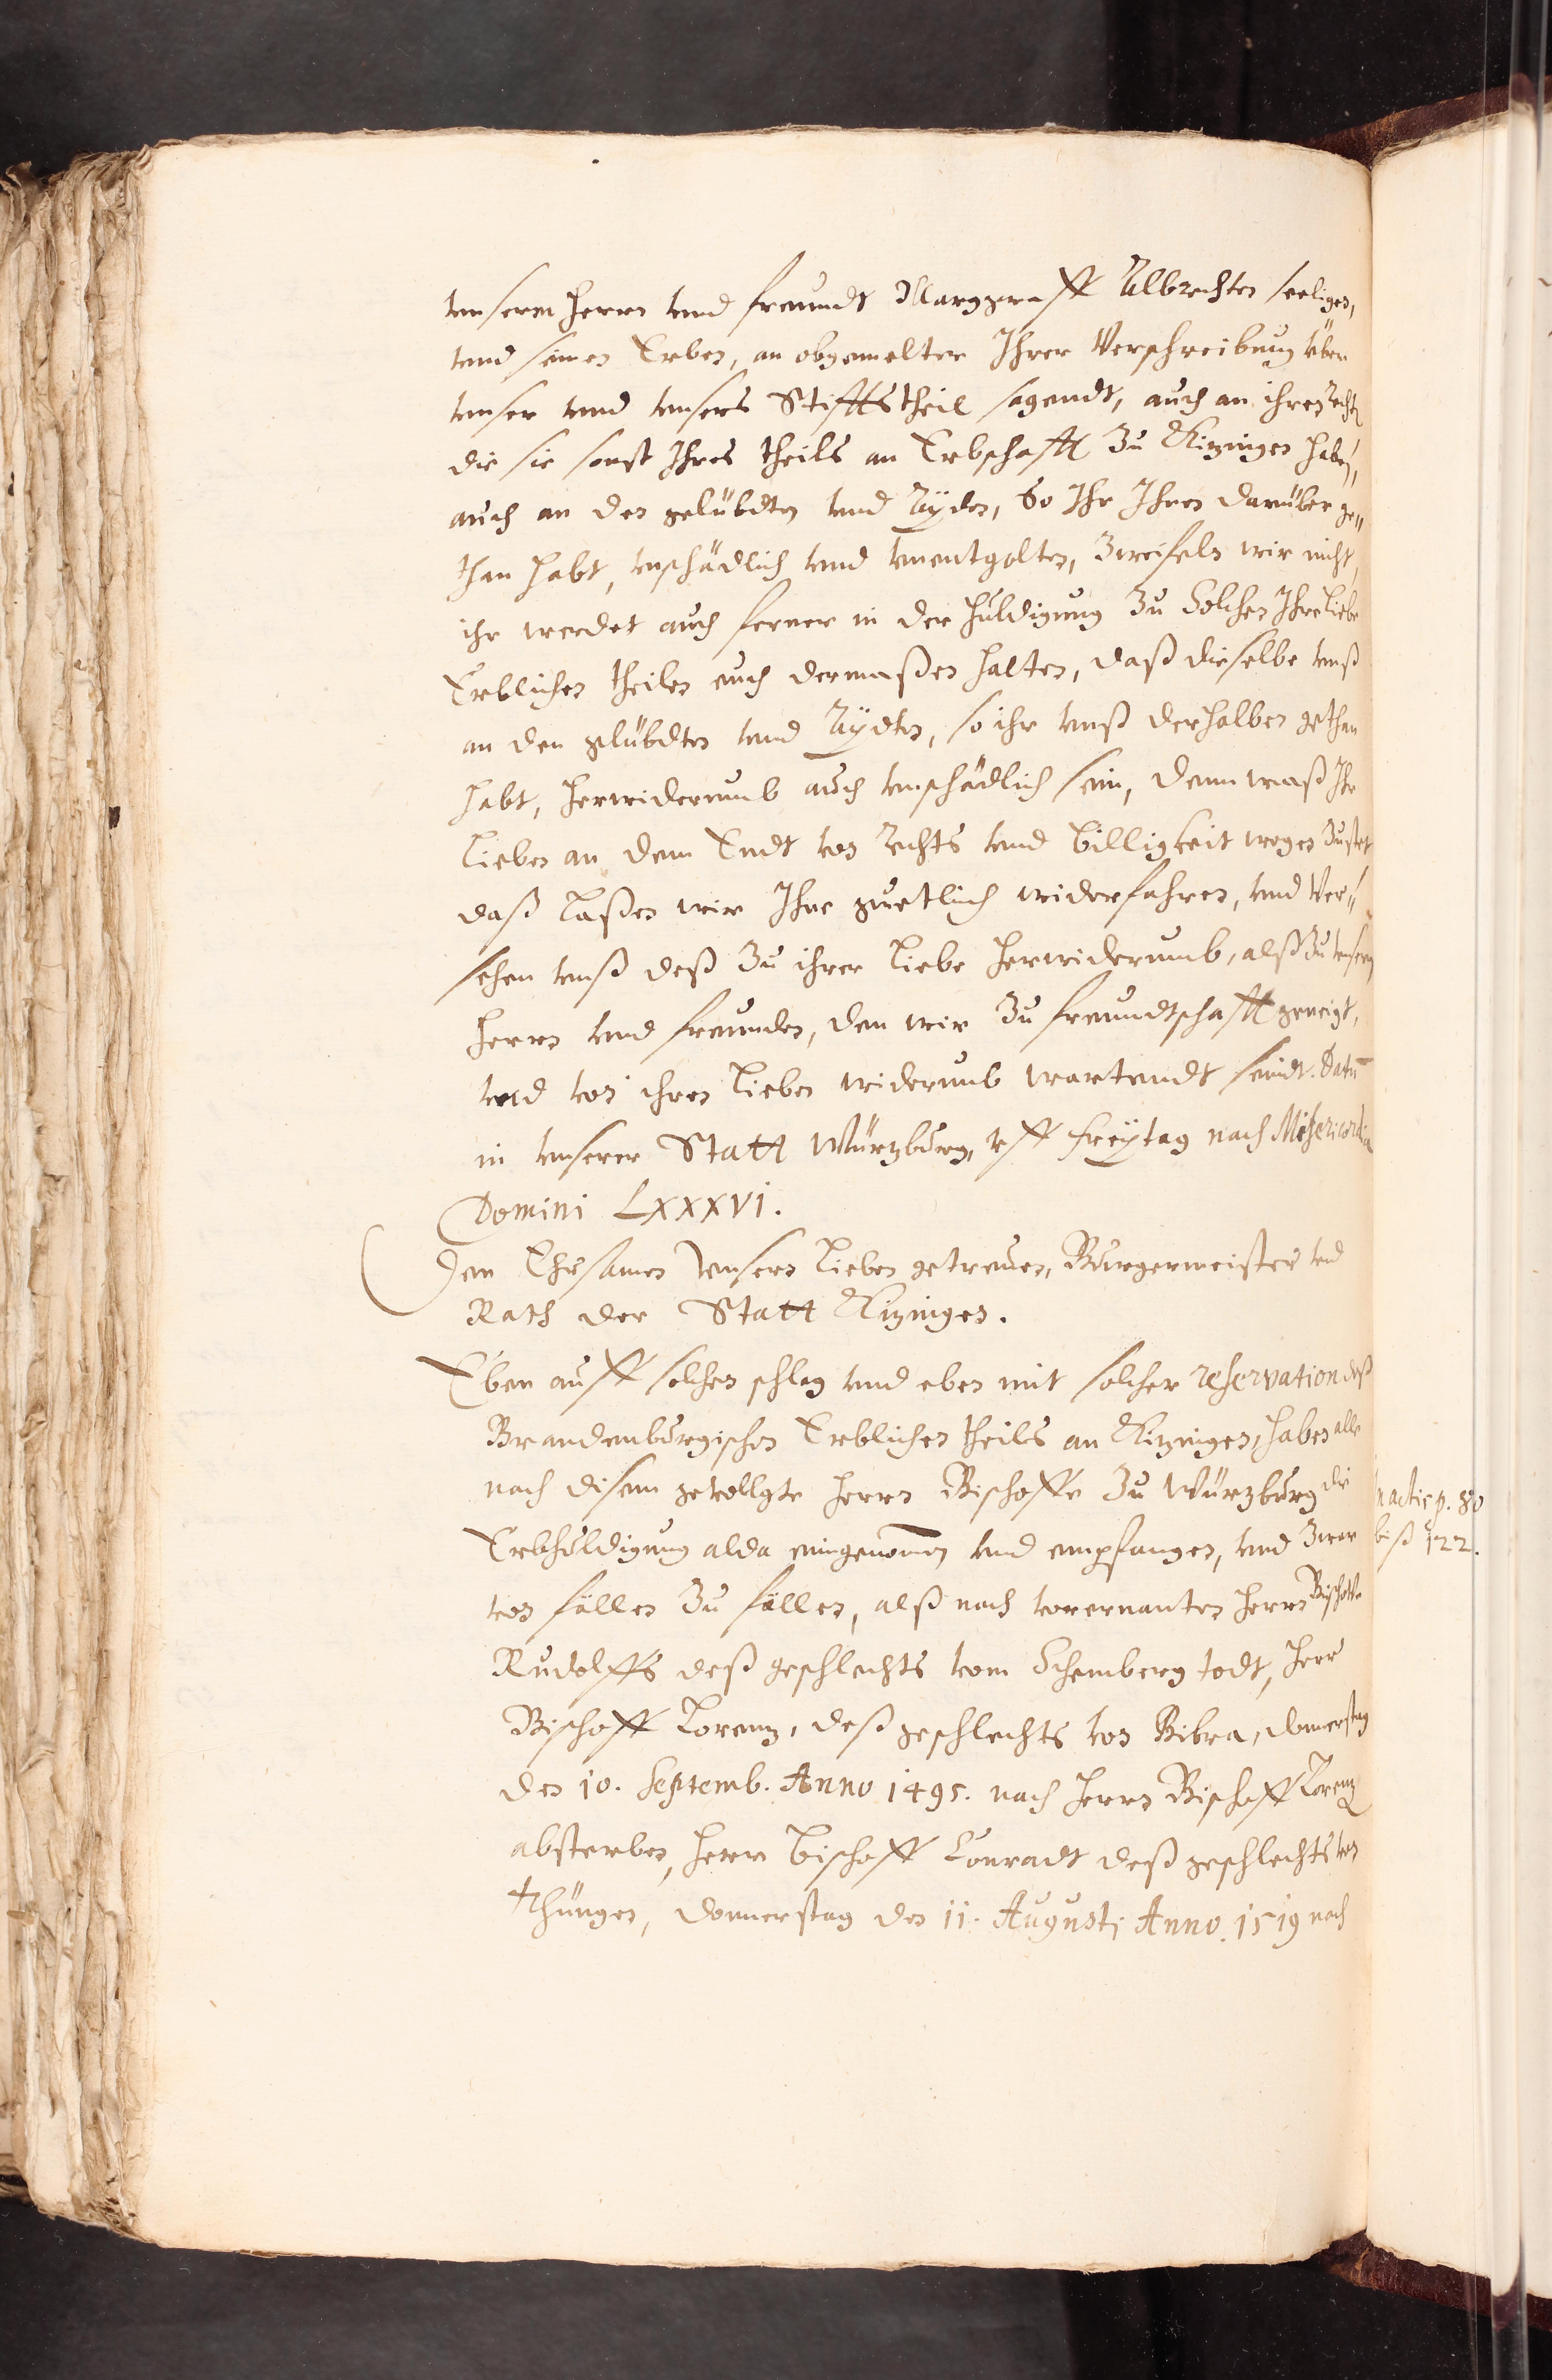 vnserm herrn vnd freundt Marggraff Albrechten seeligen,
vnd seinen Erben, an obgemelter Ihrer Verschreibung über
vnser vnd vnsers Stifftstheil sagendt, auch an ihren recht
die sie sonst Ihres theils an Erbschafft Zu Kitzingen haben,
auch an den gelübdten vnd Aÿden, So Ihr Ihnen darüber ge„
than habt, vnschädlich vnd vnentgolten, Zweifeln wir nicht,
ihr werdet auch ferner in der huldigung Zu Solchen Ihre Liebe
Erblichen theilen euch dermaßen halten, daß dieselbe vnß
an den gelübdten vnd Aÿdten, so ihr vnß derhalben gethan
habt, herwiderumb auch vnschädlich sein, dann waß Ihr
Lieben an dem Endt von rechts vnd billigkeit wegen Zustet
daß Laßen wir Ihne guetlich widerfahren, vnd Ver„
sehen vnß deß Zu ihrer Liebe herwiderumb, alß Zu vnserm
herrn vnd freunden, den wir Zu freundtschafft geneigt,
vnd von ihren Lieben widerumb wartendt seindt. Datū
in vnserer Statt Würtzburg, vff freÿtag nach Misericordia
Domini LXXXVI.
Den Ehrsamen vnsern Lieben getreuen, Burgermeister vnd
Rath der Statt Kitzingen.
Eben auff solchen schlag vnd eben mit solcher reservation deß
Brandenburgischen Erblichen theils an Kitzingen, haben alle
nach disem gevollgte herrn Bischoffe Zu Würtzburg die
Erbhuldigung alda eingenomen vnd empfangen, vnd Zwar
von fällen Zu fällen, alß nach vorernanten herrn Bischoffe
Rudolffs deß geschlechts vom Schernberg todt, herr
Bischoff Lorentz, deß geschlechts von Bibra, donnerstag
den 10. Septemb. Anno 1495. nach herrn Bischoff Lorentz
absterben, herr bischoff Conradt deß geschlechts von
Thüngen, donnerstag den 11. Augusti Anno 1519 nach
in actis p. 80
biß 122.